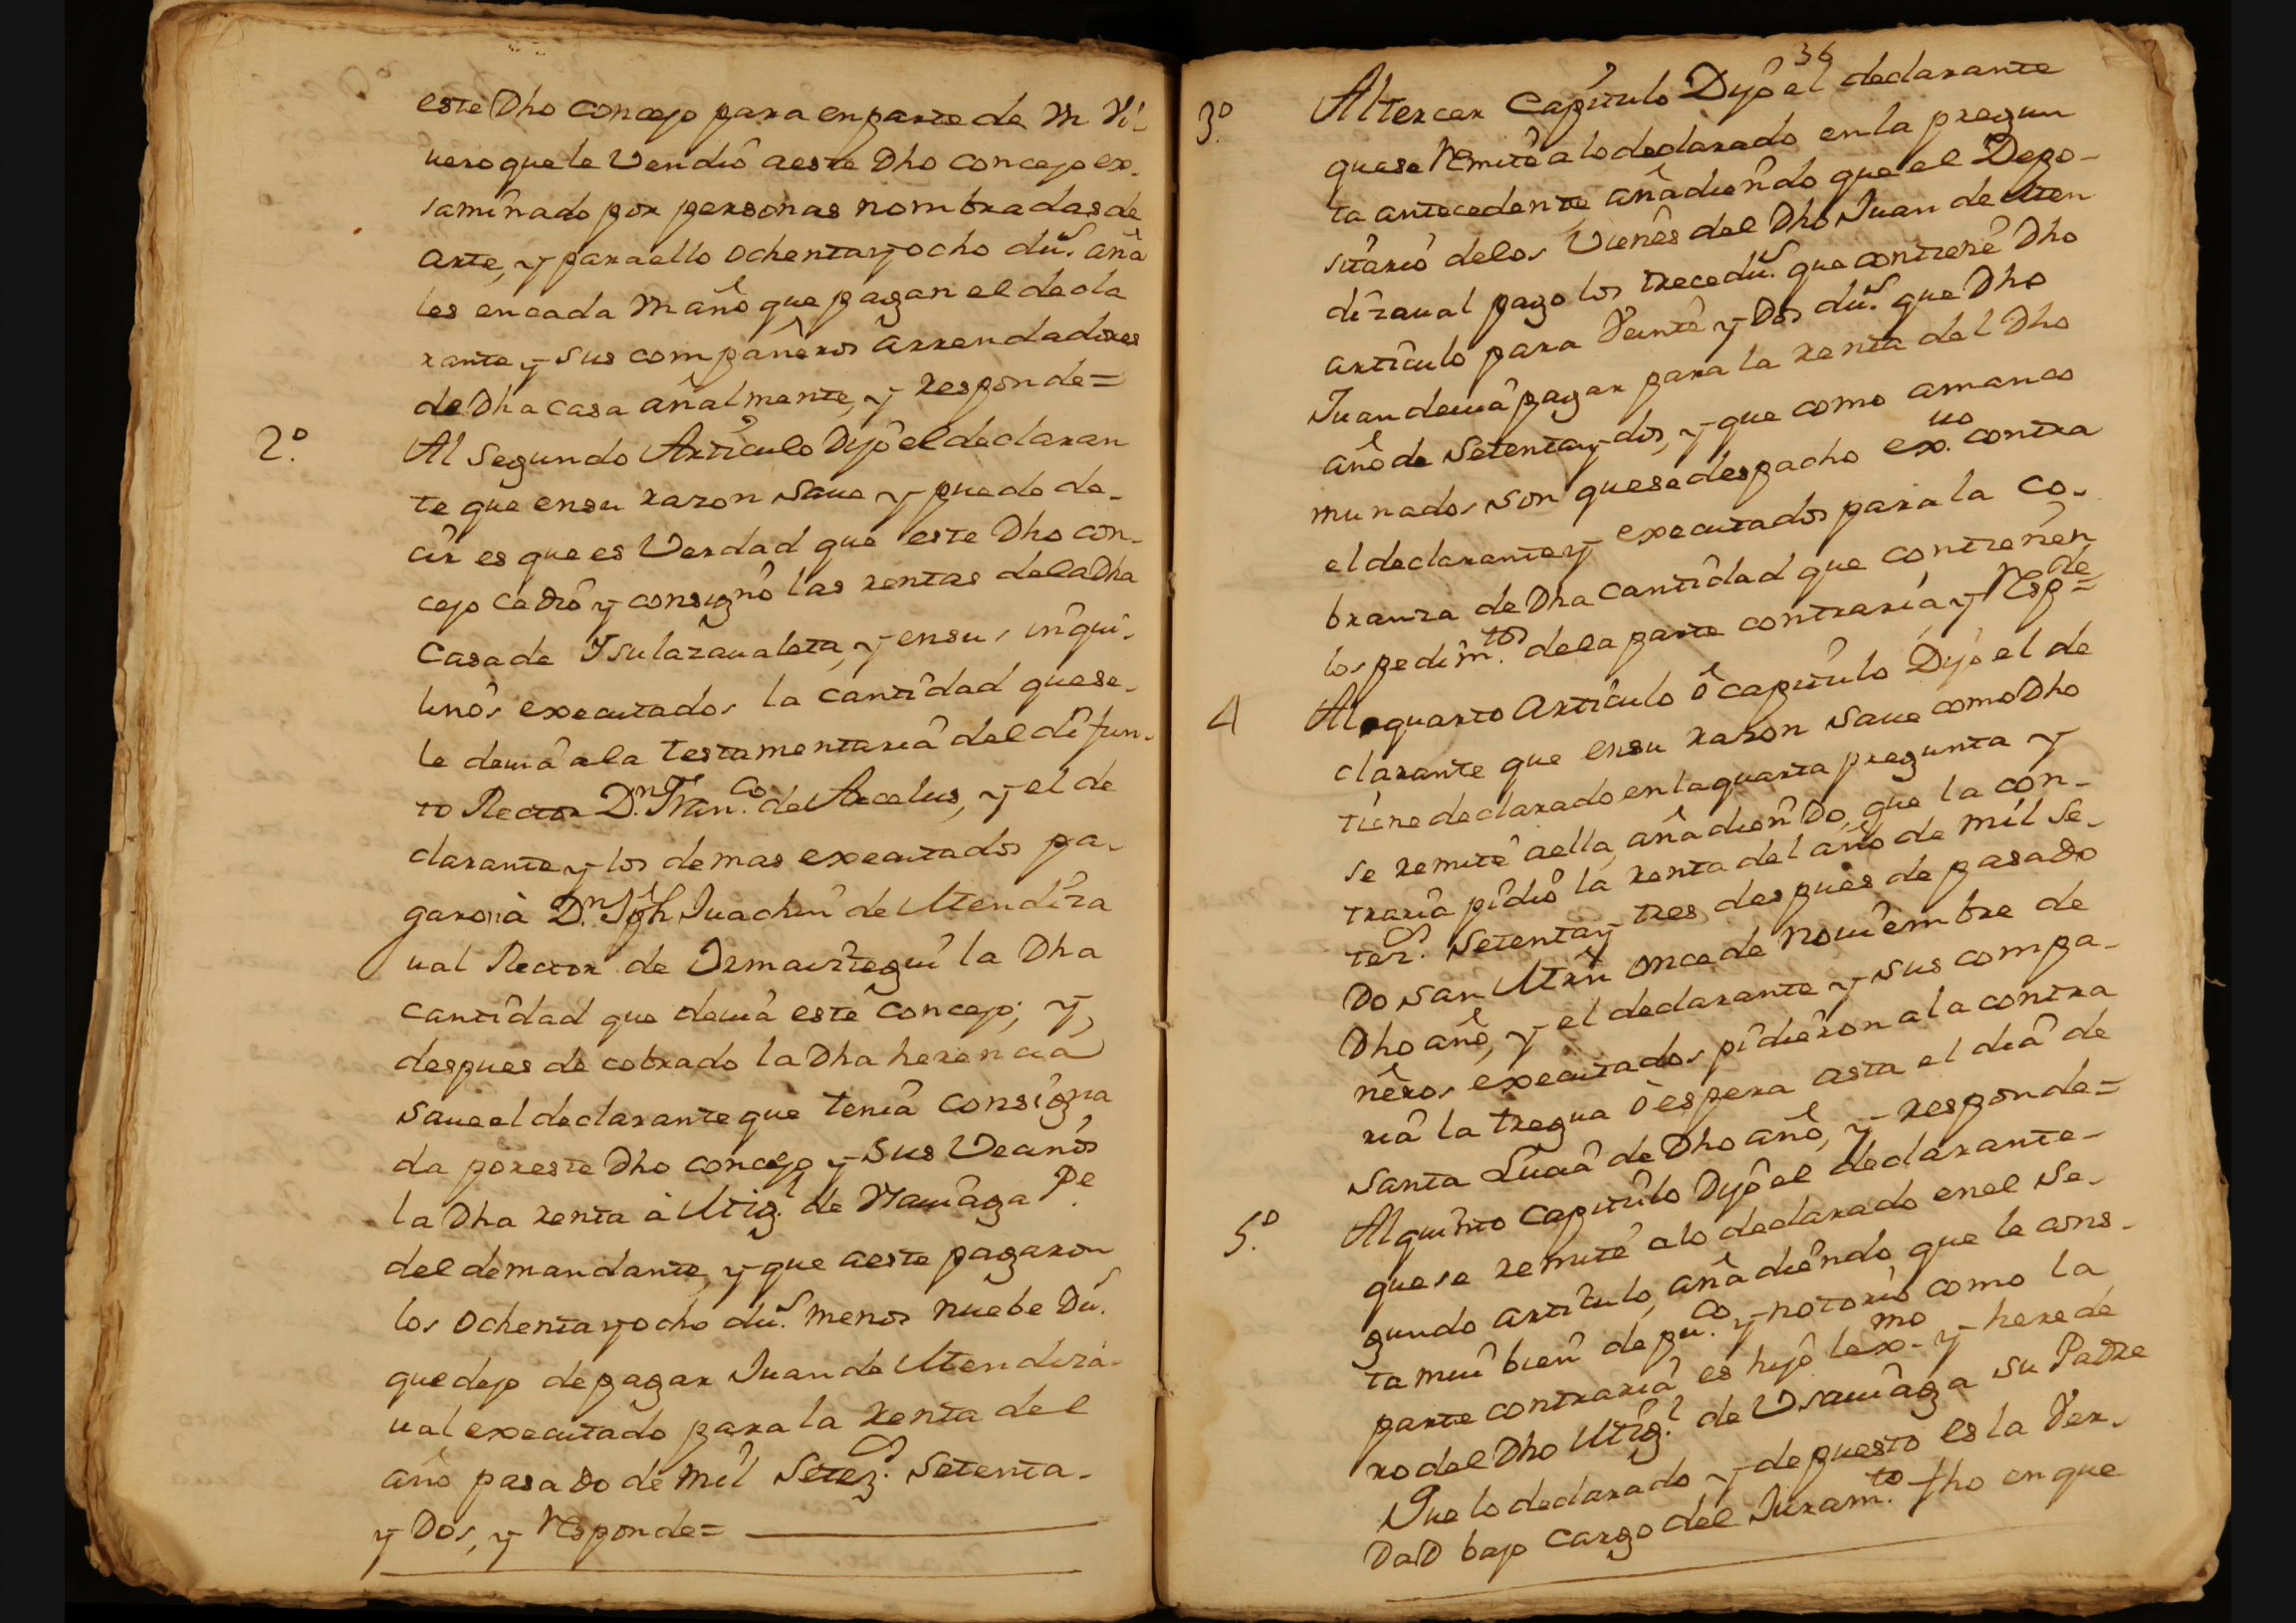 este Dho concejo para en parte de un Vi-
uero que le Vendiô aeste Dho concejo ex-
saminado por personas nombradas de
arte, y para ello ochenta y ocho dus. aña
les en cada un año que pagan el decla
rante y sus compañeros arrendadores
de Dha casa añalmente, y responde=
2.º Al Segundo Artículo Dijo el declaran
te que en su razon saue y puede de-
cir es que es Verdad que este Dho con-
cejo cediô y consignô las rentas de la Dha
Casa de Ysulazaualeta, y en sus inqui-
linos executados la cantidad que se-
le deuia a la testamentaria del difun-
to Rector D.n Fran.co de Arcelus, y el de
clarante y los demas executados pa-
garon à D.n Jph Juachin de Mendiza
ual Rector de Ormaiztegui la Dha
cantidad que deuia este concejo; y,
despues de cobrado la Dha herencia
saue el declarante que tenia consigna
da por este Dho concejo y sus Vecinos
la Dha renta à Mig.l de Usauiaga P.e
del demandante, y que aeste pagaron
los ochenta y ocho dus. menos nuebe Dus.
que dejo de pagar Juan de Mendiza-
ual executado para la renta del
año pasado de mil Setez.os Setenta-
y Dos, y responde=
36
3.º Al tercer Capitulo Dijo el declarante
que se remite a lo declarado en la pregun
ta antecedente añadiendo que el Depo-
sitario delos Vienes del Dho Juan de Men
dizaual pago los trece dus. que contiene Dho
articulo para Veinte y Dos dus. que Dho
Juan deuia pagar para la renta del Dho
año de Setenta y dos, y que como amanco
munados son que se despacho ex.uo contra
el declarante y executados para la co-
branza de Dha Cantidad que contienen
los pedim.tos dela parte contraria, y Resp.de=
4 Al quarto Articulo ô capitulo Dijo el de
clarante que en su razon saue como Dho
tiene declarado en la quarta pregunta y
se remite aella, añadiendo, que la con-
traria pidiô la renta del año de mil Se-
tez.os Setenta y tres despues de pasado
Do San Mrñ once de Nouiembre de
Dho año, y el declarante y sus compa-
ñeros executados pidieron a la contra
ria la tregua ò espera asta el dia de
Santa Lucia de Dho año, y responde=
5.º Al quinto Capitulo Dijo el declarante-
que se remite alo declarado en el Se-
gundo articulo, añadiendo, que le cons-
ta mui bien de pu.co y notorio como la
parte contraria es hijo lex.mo y herede
ro del Dho Mig.l de Usauiaga su Padre
Que lo declarado, y depuesto es la Ver-
DaD bajo cargo del Juram.to fho en que